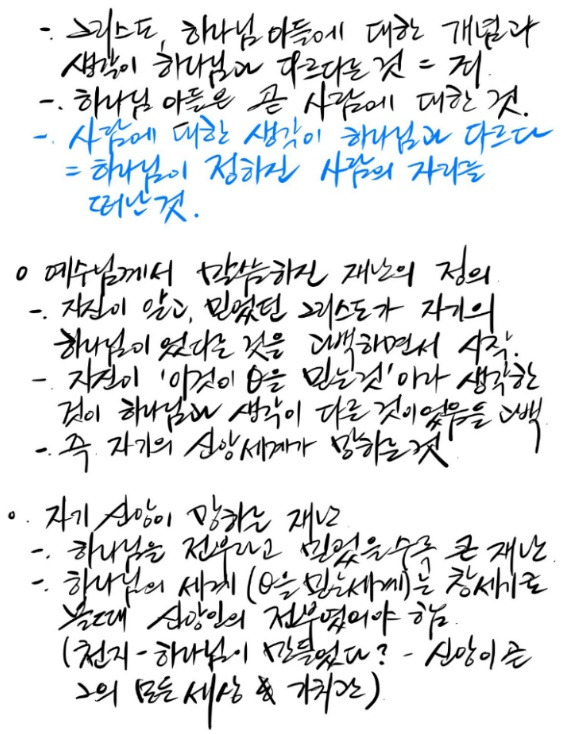 -. 그리스도, 하나님 아들에 대한 개념과
생각이 하나님과 다르다는 것 = 죄.
-. 하나님 아들은 곧 사람에 대한 것.
-. 사람에 대한 생각이 하나님과 다르다
= 하나님이 정하신 사람의 자리를
떠난 것.
o 예수님께서 말씀하신 재난의 정의
-. 자신이 알고, 믿었던 그리스도가 자기의
하나님이었다는 것을 고백하면서 시작.
-. 자신이 '이것이 θ을 믿는것'이라 생각한
것이 하나님과 생각이 다른 것이었음을 고백
-. 즉 자기의 신앙세계가 망하는것
o. 자기 신앙이 망하는 재난
-. 하나님을 전부라고 믿었을수록 큰 재난
-. 하나님의 세계 (θ을 믿는세계)는 창세기로
볼때 신앙인의 전부였어야 함
(천지 - 하나님이 만들었다? - 신앙이 곧
그의 모든 세상 & 가치관)